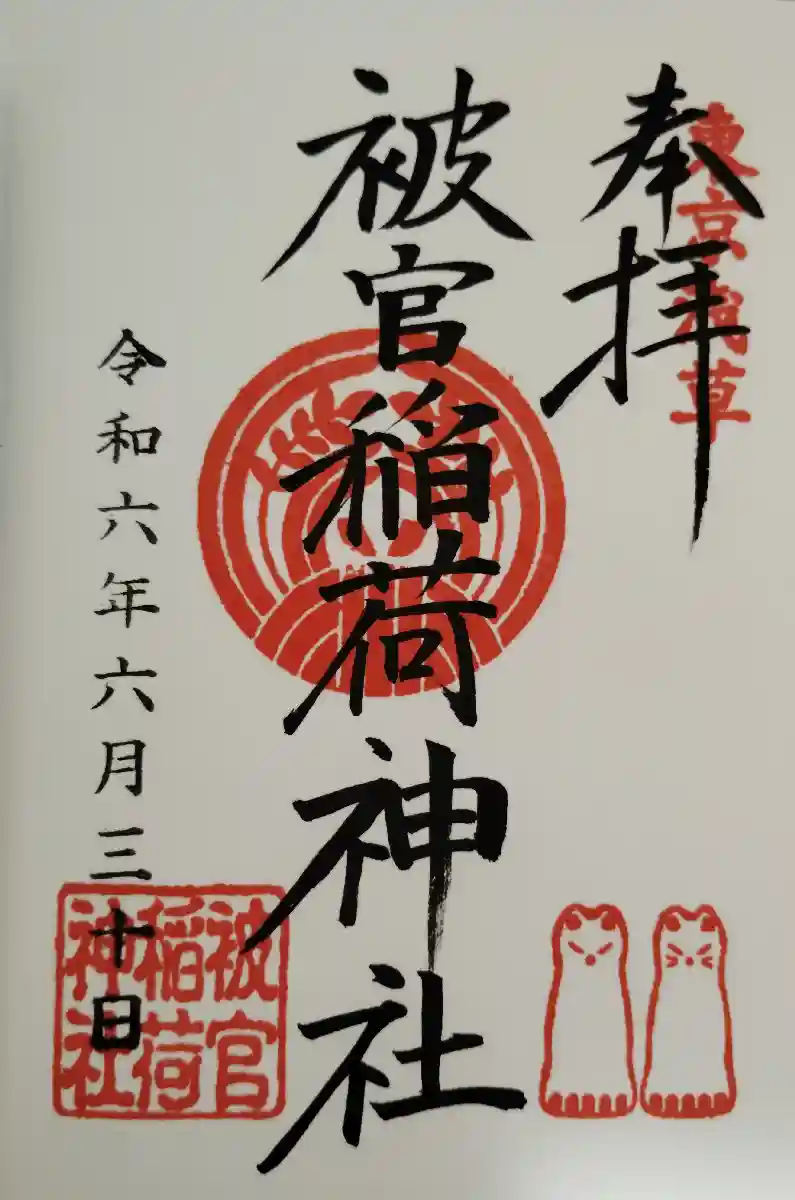 奉拝
東京浅草
被官稲荷神社
令和六年六月三十日
被官稲荷神社